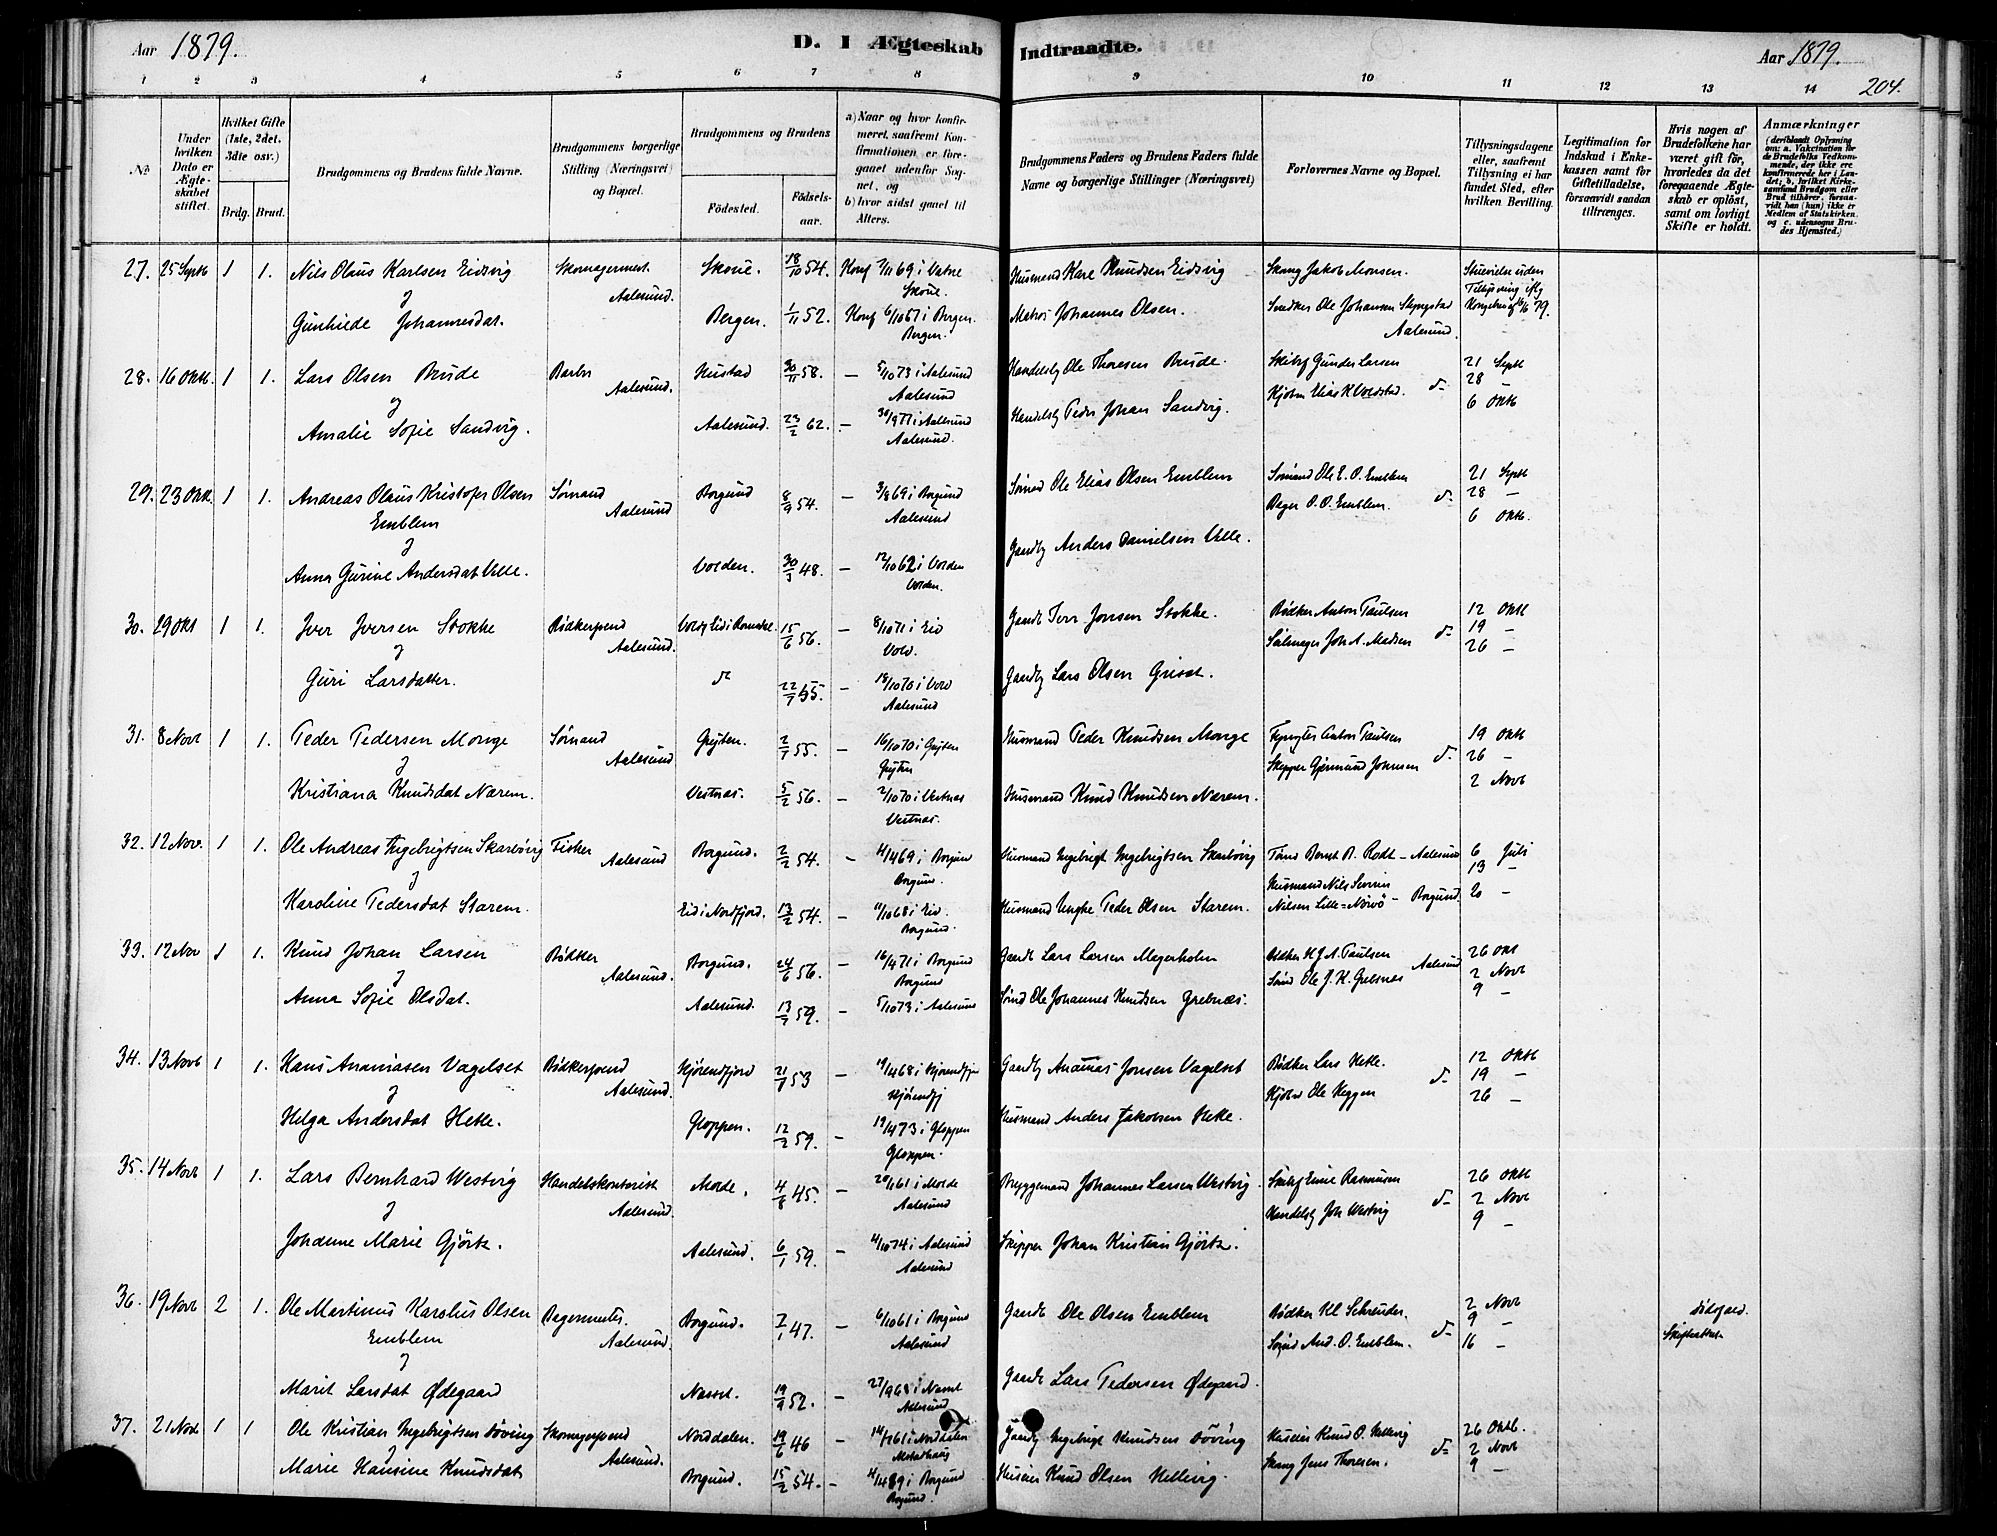 Aar 1879.
D. I Ægteskab Indtraadte.
Aar 1879.
204.
1 2 3 4 5 6 7 8 9 10 11 12 13 14
№
Under hvilken Dato er Ægteskabet stiftet.
Hvilket Gifte (1ste, 2det, 3die osv.)
Brdg. Brud.
Brudgommens og Brudens fulde Navne.
Brudgommens borgerlige Stilling (Næringsvei) og Bopæl.
Brudgommens og Brudens
Fødested.
Fødselsaar.
a) Naar og hvor konfirmeret, saafremt Konfirmationen er foregaaet udenfor Sognet, og
b) hvor sidst gaaet til Alters.
Brudgommens Faders og Brudens Faders fulde Navne og borgerlige Stillinger (Næringsvei)
Forlovernes Navne og Bopæl.
Tillysningsdagene eller, saafremt Tillysning ei har fundet Sted, efter hvilken Bevilling.
Legitimation for Indskud i Enkekassen samt for Giftetilladelse, forsaavidt saadan tiltrænges.
Hvis nogen af Brudefolkene har været gift før, hvorledes da det foregaaende Ægteskab er opløst, samt om lovligt Skifte er holdt.
Anmærkninger
27. 25 Septb 1 1. Nils Olaus Karlsen Eidsvig
Aalesund. Skoue. 18/10 54. Konf 7/11 69 i Vatne
Skoue.
Husmand Karl Knudsen Eidsvig
Skomg Jakob Monsen.
Stuevielse uden
Tillysning iflg
og
Gunhilde Johannesdat.
Bergen. 1/11 52. Konf 6/10 67 i Bergen.
Bergen.
Matros Johannes Olsen.
Aalesund.
28. 16 Oktb. 1 1. Lars Olsen Brude
Aalesund. Hustad 30/11 58. — 5/10 73 i Aalesund
Aalesund
Handelsb Ole Thoresen Brude.
Gunder Larsen
21 Septb
28 —
6 Oktb
og
Amalie Sofie Sandvig.
Aalesund. 23/2 62. — 30/9 77 i Aalesund
Aalesund.
Handelsb Peder Johan Sandvig.
29. 23 Oktb. 1 1. Andreas Olaus Kristofer Olsen
Emblem
Sømand
Aalesund Borgund 8/9 54. — 3/8 69 i Borgund
Aalesund
Sømd Ole Elias Olsen Emblem
Sømand Ole E. O. Emblem
Bager O. O. Emblem.
21 Septb
28 —
6 Oktb.
og
Anna Gurine Andersdat Velle.
Volden. 30/3 48. — 12/10 62 i Volden
Volden.
Gaardb Anders Danielsen Velle.
30. 29 Okt 1 1. Iver Iversen Stokke
Bødkersvend
Aalesund. 15/6 56. — 8/10 71 i Eid
Vold.
Gaardb Iver Jonsen Stokke.
Bødker Anton Paulsen
Joh A. Madsen
12 Oktb
19 —
26 —
og
Guri Larsdatter.
22/7 55. — 18/10 70 i Vold
Aalesund
Gaardb Lars Olsen Griset.
31. 8 Novb 1 1. Peder Pedersen Monge
Sømand
Aalesund Grytten. 2/7 55. — 16/10 70 i Grytten
Grytten
Husmand Peder Knudsen Monge
Anton Paulsen
Skipper Gjermund Johnsen
19 Oktb
26 —
2 Novb
og
Kristiana Knudsdat Nærem.
Vestnæs. 5/2 56. — 2/10 70 i Vestnæs
Vestnæs.
Husmand Knud Knudsen Nærem.
32. 12 Nov. 1 1. Ole Andreas Ingebrigtsen Skarbøvig
Fisker
Aalesund Borgund. 2/2 54. — 4/4 69 i Borgund
Borgund.
Husmand Ingebrigt Ingebrigtsen Skarbøvig
Bernt B. Rodt — Aalesund
6 Juli
13 —
20 —
og
Karoline Pedersdat Starem.
Eid i Nordfjord. 13/2 54. — 11/10 68 i Eid.
Borgund.
Husmand Peder Olsen Starem.
Husmand Nils Severin
Nilsen Lille-Nørvø — Borgund
33. 12 Nov 1 1. Knud Johan Larsen
Bødker
Aalesund. Borgund. 24/6 56. — 16/4 71 i Borgund
Borgund
Gaardb Lars Larsen Magerholm
Bødker H. J. A. Paulsen
Sømd Ole J. K. Grebnæs Aalesund
26 Okt
2 Novb
9 —
og
Anna Sofie Olsdat.
Aalesund. 13/7 59. — 5/10 73 i Aalesund
Sømd Ole Johannes Knudsen Grebnæs.
34. 13 Novb 1 1. Hans Ananiasen Vagelset
Bødkersvend
Aalesund. Hjørendfjord 21/7 53 — 19/4 68 i Hjørendfj
Hjørendfj
Gaardb Ananias Jonsen Vagelset
Bødker Lars Hekle.
Ole Heggen
12 Oktb
19 —
26 —
og
Helga Andersdat Hekle.
Gloppen. 12/2 59. — 19/4 73 i Gloppen
Gloppen.
Husmand Anders Jakobsen Hekle.
35. 14 Novb 1 1. Lars Bernhard Westvig
Handelskontorist
Aalesund. Molde. 4/8 45. — 20/1 61 i Molde
Aalesund
Bryggemand Johannes Larsen Westvig
Rasmussen
Handelsb Joh Westvig
26 Oktb
2 Novb
9 —
og
Johanne Marie Gjørtz.
Aalesund. 6/1 59. — 4/10 74 i Aalesund
Aalesund
Skipper Johan Kristian Gjørtz.
36. 19 Novb 2 1. Ole Martinus Karolus Olsen
Emblem
Bagermester.
Aalesund. Borgund. 7/1 47. — 6/10 61 i Borgund
Aalesund
Gaardb Ole Olsen Emblem
Bødker Kl Schreuder.
And. O. Emblem.
2 Novb
9 —
16 —
og
Marit Larsdat Ødegaard
Næsset. 19/9 52. — 27/9 68 i Næsset
Aalesund
Gaardb Lars Pedersen Ødegaard.
37. 21 Nov. 1 1 Ole Kristian Ingebrigtsen Døving
Skomagersvend
Aalesund. Norddalen. 19/6 46 — 14/7 61 i Norddalen
Gaardb Ingebrigt Knudsen Døving
Knud O. Hellevig
Skomg Jens Thoresen.
26 Oktb.
2 Novb
9 —
og
Marie Hansine Knudsdat
Borgund. 15/2 54. — i Borgund
Borgund.
Knud Olsen Hellevig.